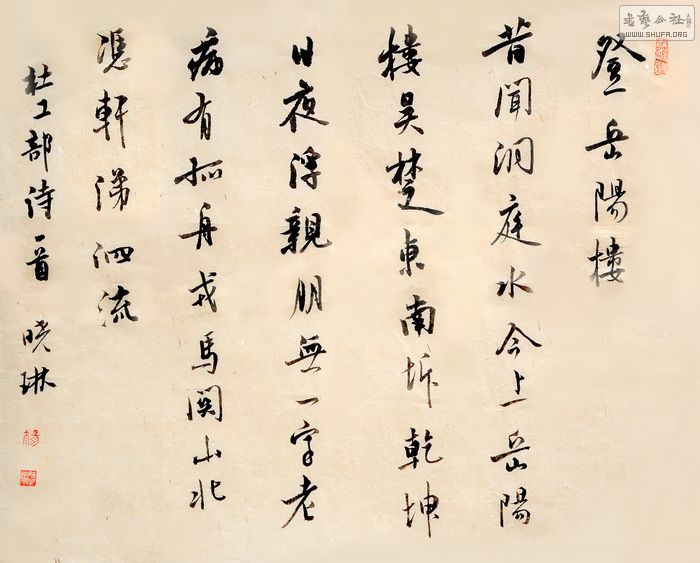 登岳陽樓
昔聞洞庭水今上岳陽
樓吴楚東南坼乾坤
日夜浮親朋無一字老
病有孤舟戎馬関山北
憑軒涕泗流
杜工部诗一首 晓琳
楊
書艺公社
WWW.SHUFA.ORG